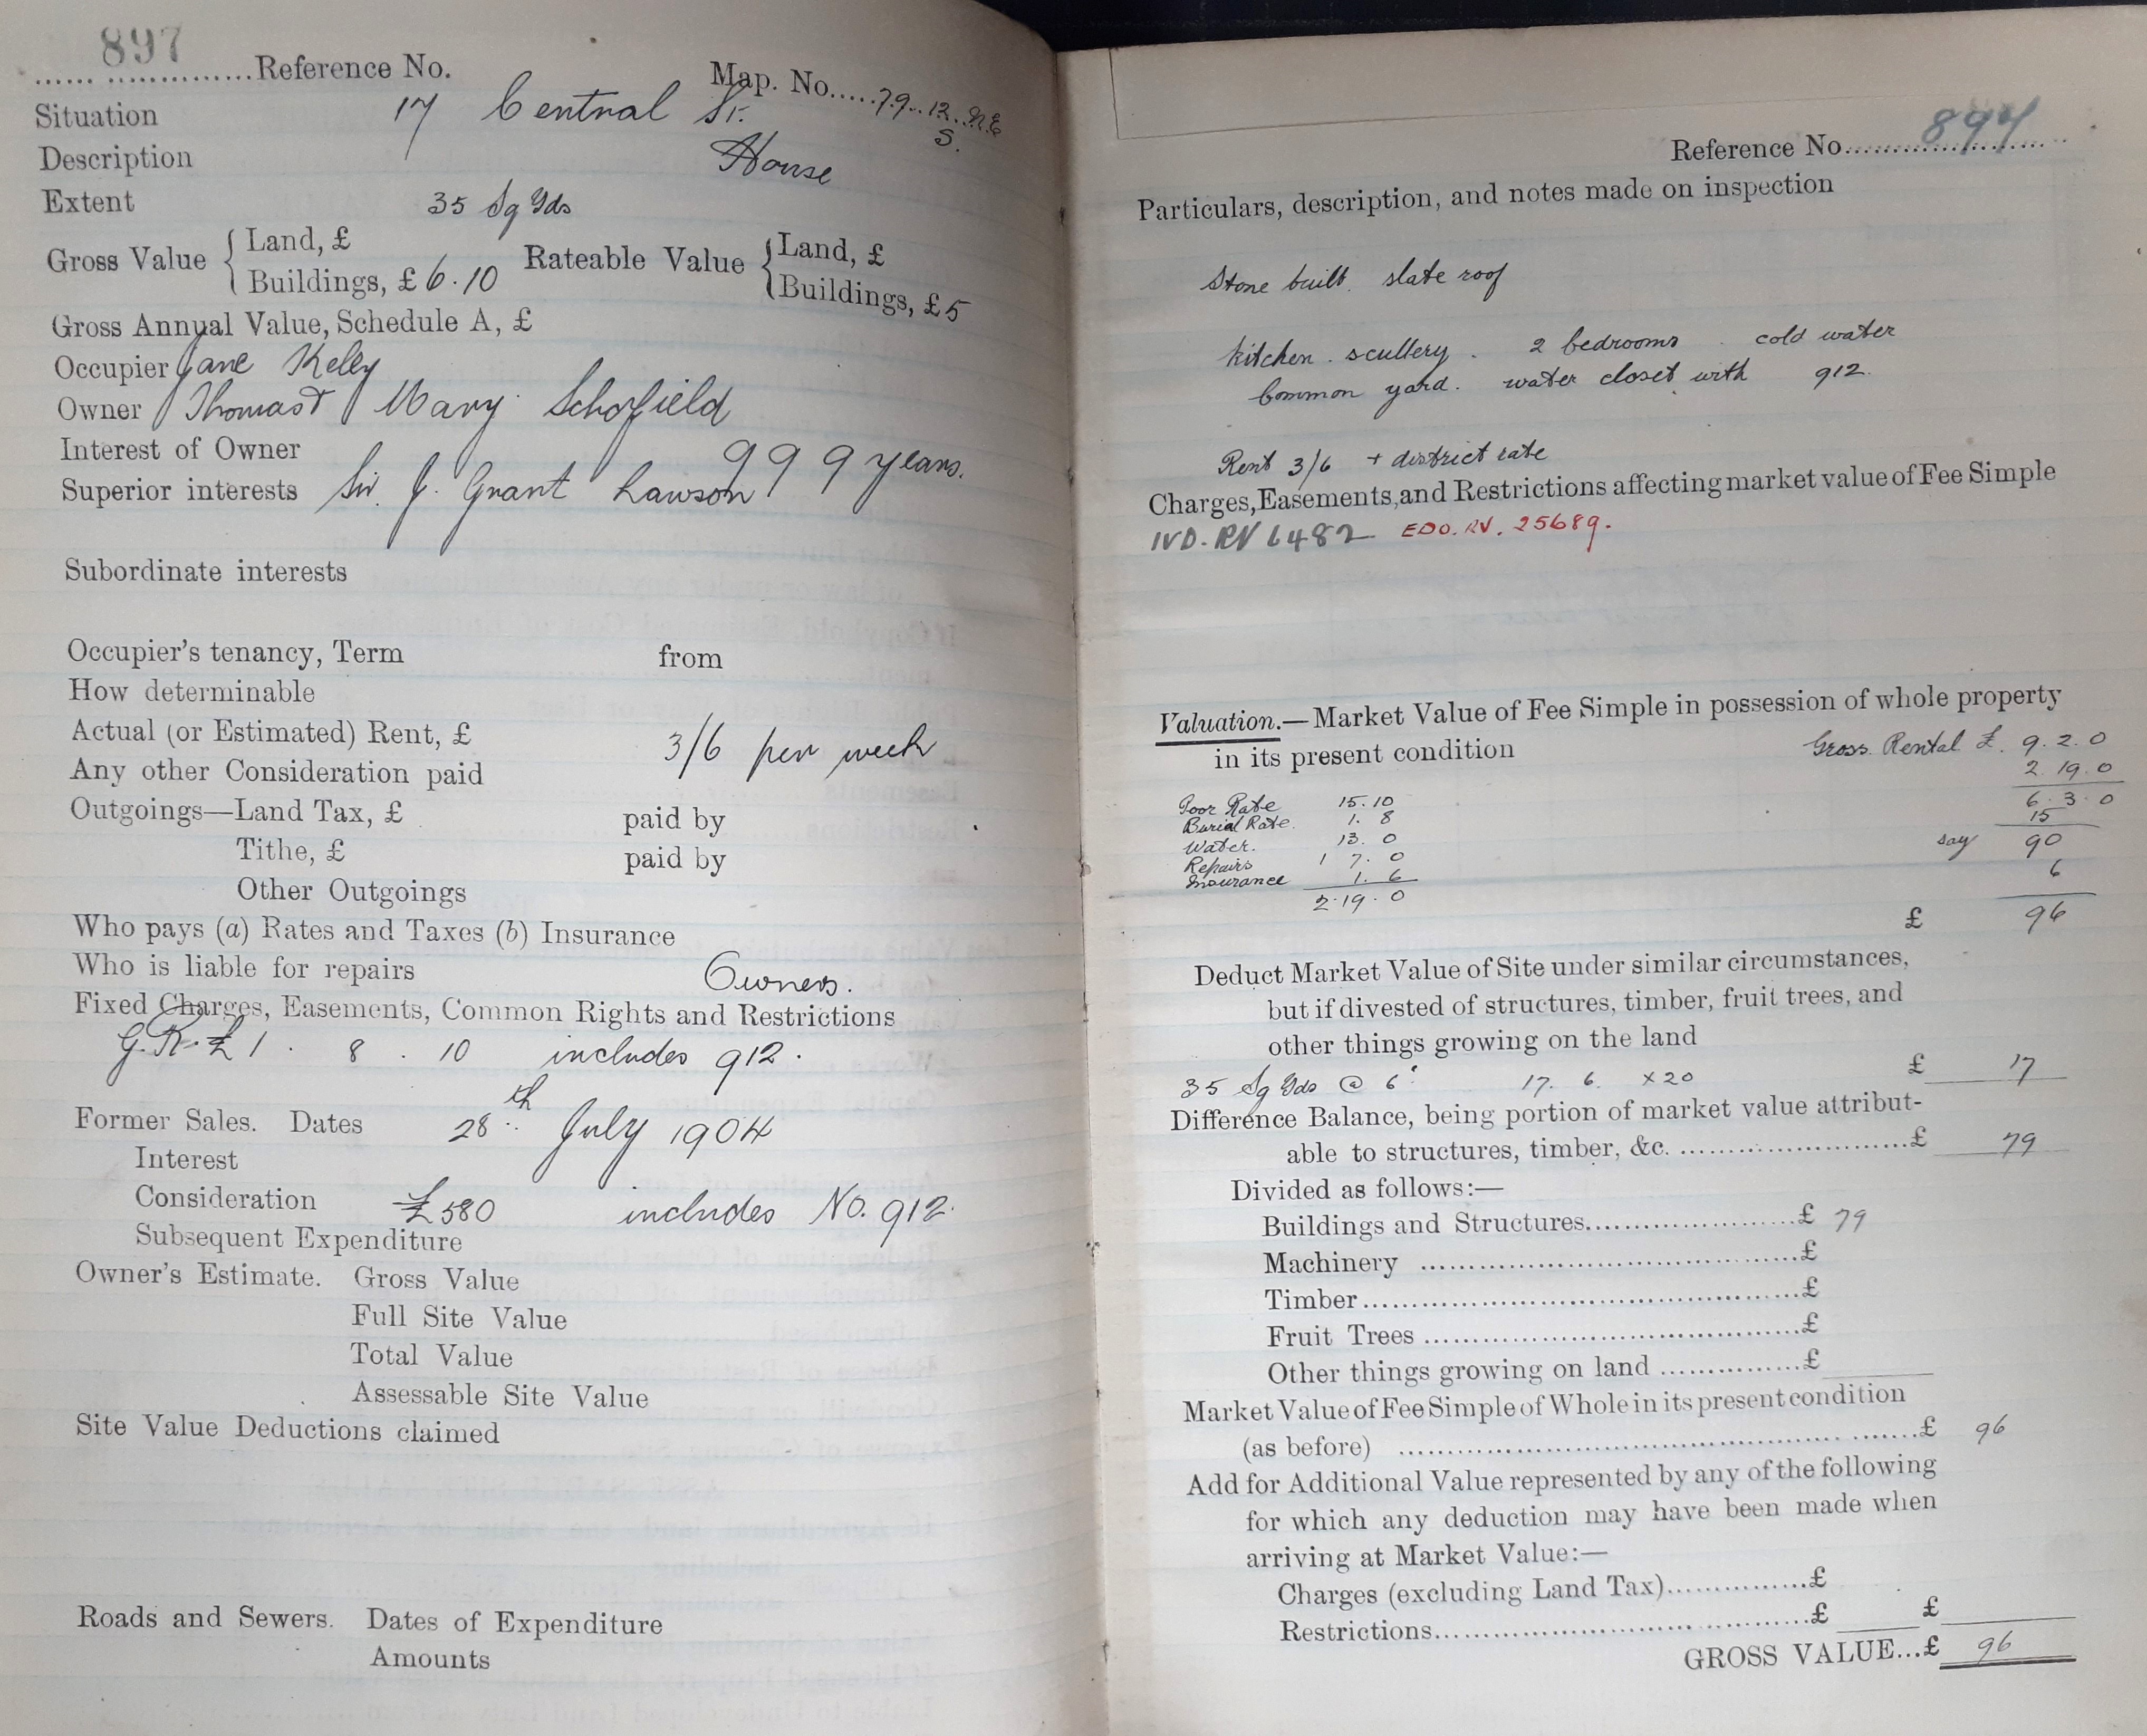 897
Reference No.
Map. No. 79. 12. N.E
S.
Situation 17 Central St.
Description House
Extent 35 Sq Yds
Gross Value { Land, £ Rateable Value { Land, £
Buildings, £ 6.10 Buildings, £ 5
Gross Annual Value, Schedule A, £
Occupier Jane Kelly
Owner Thomas & Mary Schofield
Interest of Owner 999 years.
Superior interests Sir J. Grant Lawson
Subordinate interests
Occupier's tenancy, Term from
How determinable
Actual (or Estimated) Rent, £ 3/6 per week
Any other Consideration paid
Outgoings—Land Tax, £ paid by
Tithe, £ paid by
Other Outgoings
Who pays (a) Rates and Taxes (b) Insurance
Who is liable for repairs Owners.
Fixed Charges, Easements, Common Rights and Restrictions
G.R. £1 . 8 . 10 includes 912.
Former Sales. Dates 28th July 1904
Interest
Consideration £580 includes No. 912.
Subsequent Expenditure
Owner's Estimate. Gross Value
Full Site Value
Total Value
Assessable Site Value
Site Value Deductions claimed
Roads and Sewers. Dates of Expenditure
Amounts
Reference No. 897
Particulars, description, and notes made on inspection
Stone built. slate roof
kitchen. scullery. 2 bedrooms. cold water
Common yard. water closet with 912.
Rent 3/6 + district rate
Charges, Easements, and Restrictions affecting market value of Fee Simple
IVD. RV 6482 EDO. RV. 25689.
Valuation.—Market Value of Fee Simple in possession of whole property
in its present condition Gross Rental £. 9.2.0
2.19.0
Poor Rate 15.10 6.3.0
Burial Rate. 1.8 15
Water. 13.0 say 90
Repairs 1 7.0 6
Insurance 1.6
2.19.0 £ 96
Deduct Market Value of Site under similar circumstances,
but if divested of structures, timber, fruit trees, and
other things growing on the land
35 Sq Yds @ 6 17. 6. x20 £ 17
Difference Balance, being portion of market value attribut-
able to structures, timber, &c. £ 79
Divided as follows:—
Buildings and Structures £ 79
Machinery £
Timber £
Fruit Trees £
Other things growing on land £
Market Value of Fee Simple of Whole in its present condition
(as before) £ 96
Add for Additional Value represented by any of the following
for which any deduction may have been made when
arriving at Market Value:—
Charges (excluding Land Tax) £
Restrictions £ £
GROSS VALUE...£ 96